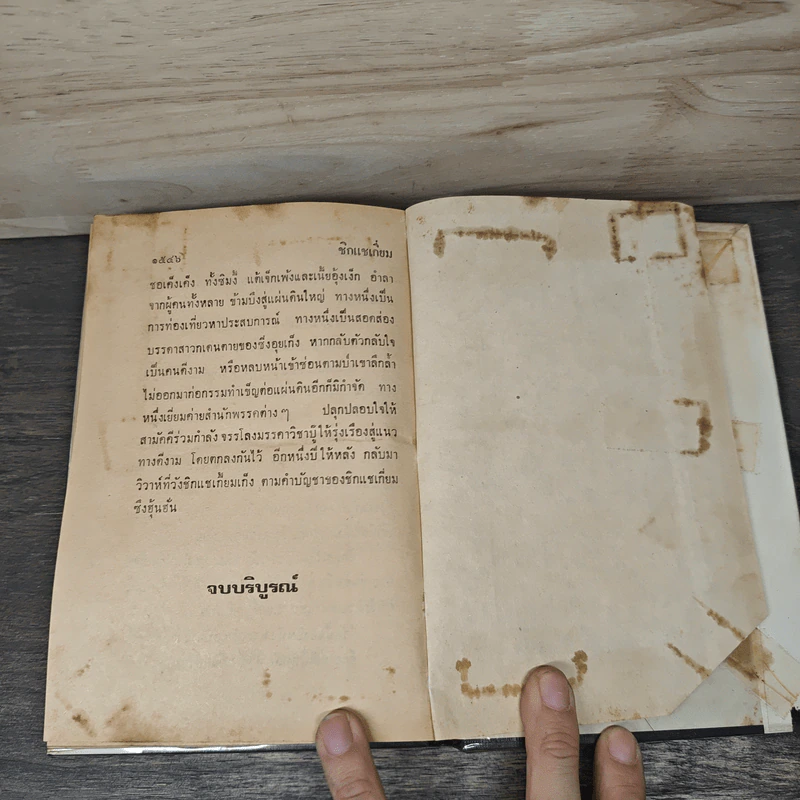 ๑๕๔๖ ชิกแชเกี่ยม
ชอเค็งเค็ง ทั้งซิมงี้ แต้เจ็กเพ้งและเนี้ยอุ้งเง็ก อำลา
จากผู้คนทั้งหลาย ข้ามบึงสู่แผ่นดินใหญ่ ทางหนึ่งเป็น
การท่องเที่ยวหาประสบการณ์ ทางหนึ่งเป็นสอดส่อง
บรรดาสาวกเดนตายของซึงอุยเก็ง หากกลับตัวกลับใจ
เป็นคนดีงาม หรือหลบหน้าเข้าซ่อนตามป่าเขาลึกล้ำ
ไม่ออกมาก่อกรรมทำเข็ญต่อแผ่นดินอีกก็มิกำจัด ทาง
หนึ่งเยี่ยมค่ายสำนักพรรคต่างๆ ปลุกปลอบใจให้
สามัคคีร่วมกำลัง จรรโลงมรรควิชาบู๊ให้รุ่งเรืองสู่แนว
ทางดีงาม โดยตกลงกันไว้ อีกหนึ่งปีให้หลัง กลับมา
วิวาห์ที่วังชิกแชเกี้ยมเก็ง ตามคำบัญชาของชิกแชเกี่ยม
ซึงฮุ้นฮั่น
จบบริบูรณ์